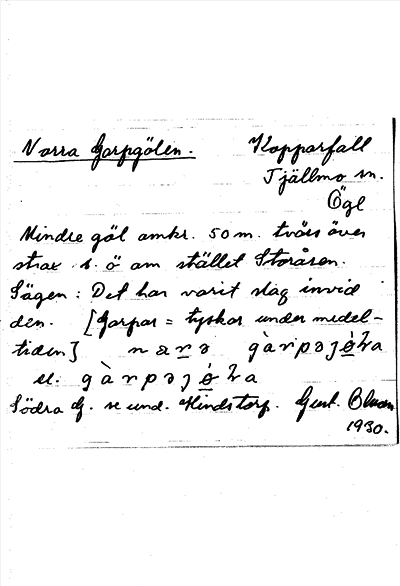 Norra Garpgölen. Kopparfall
Tjällmo sn.
Ögl
Mindre göl omkr. 50 m. tvärs över
strax s. ö om stället Storåsen.
Sägen: Det har varit slag invid
den. [Garpar = tyskar under medel-
tiden] 
el.
Södra G. se und. Hindstorp. Gust. Bloom
1930.